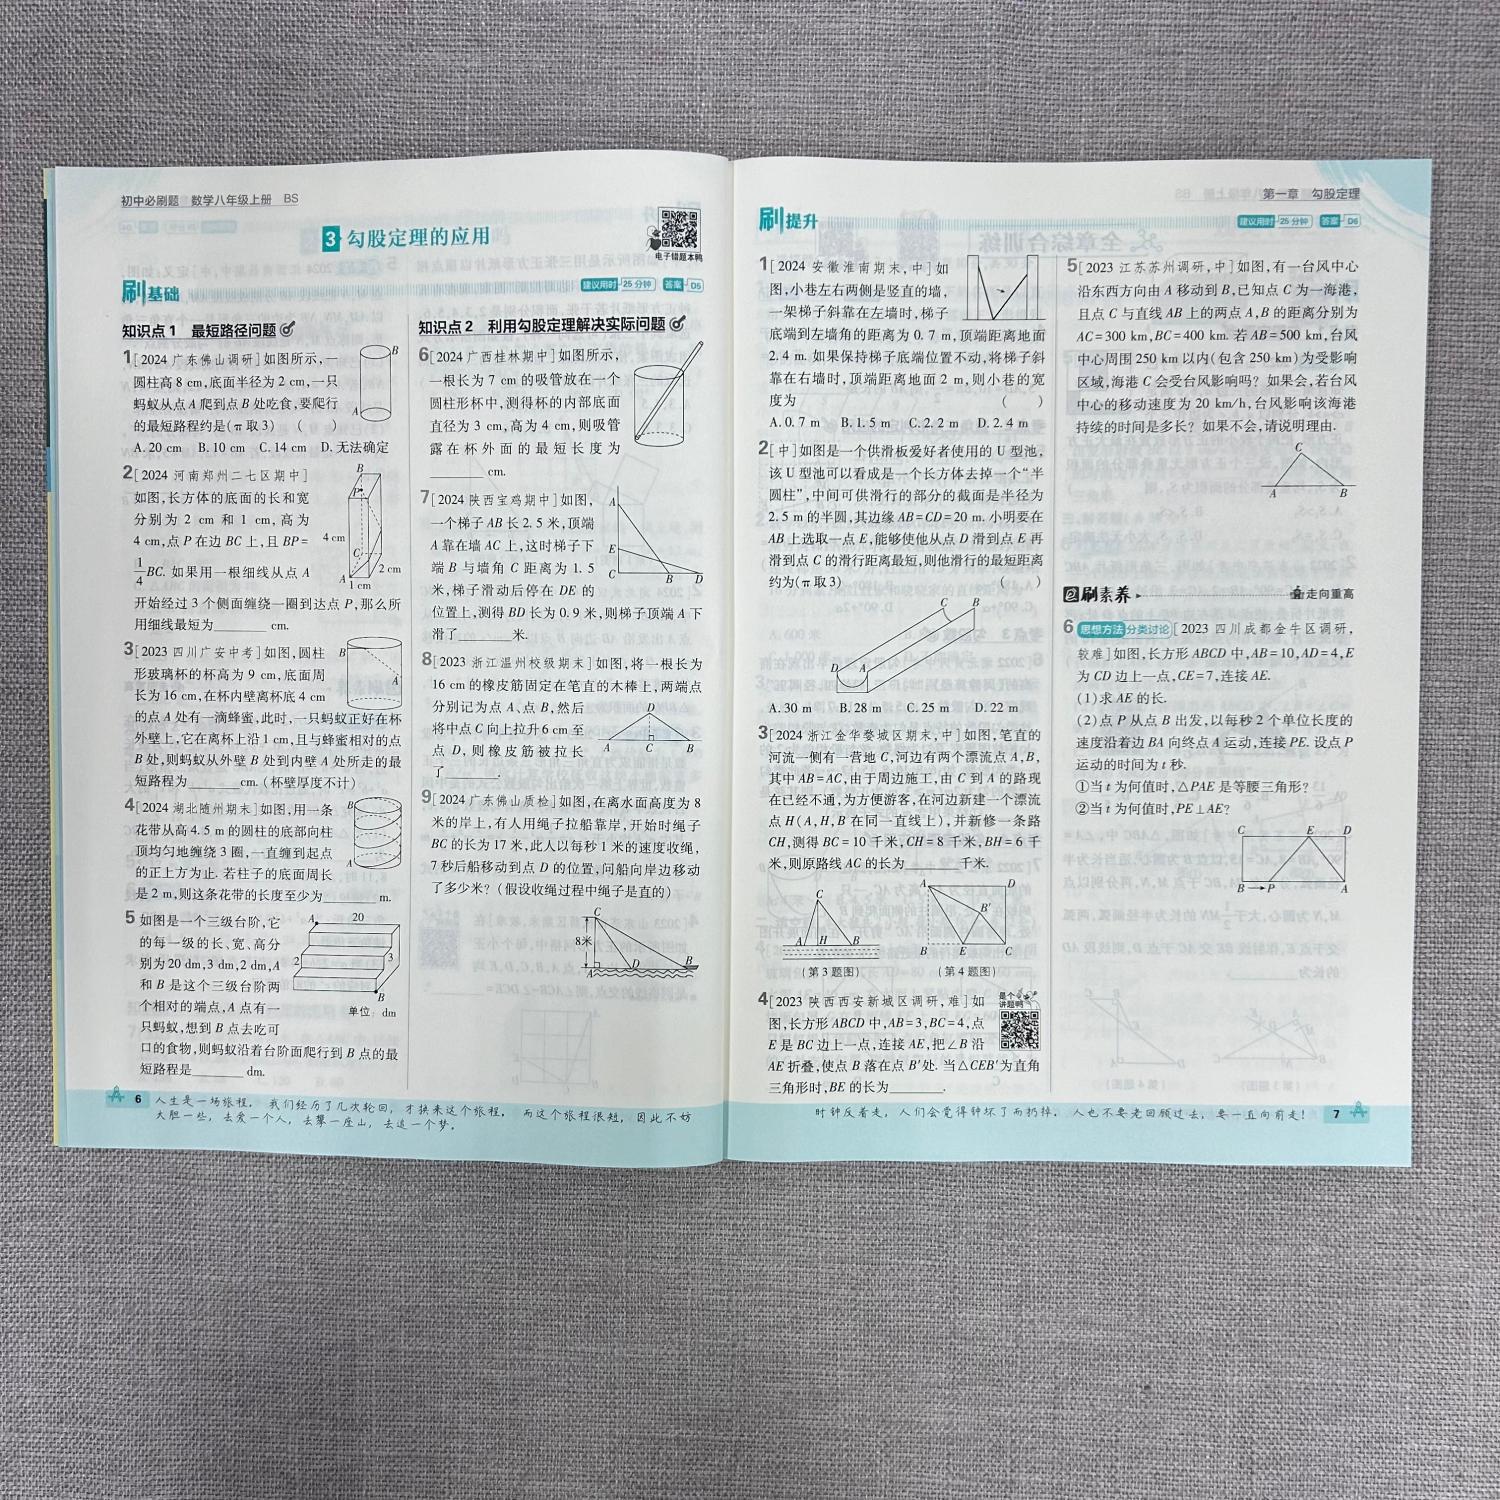 初中必刷题 数学八年级上册 BS
3 勾股定理的应用
电子错题本鸭
刷基础
建议用时 25 分钟 答案 D5
知识点1 最短路径问题
1[2024 广东佛山调研]如图所示,一
圆柱高 8 cm,底面半径为 2 cm,一只
蚂蚁从点 A 爬到点 B 处吃食,要爬行
的最短路程约是(π 取 3) ( )
A. 20 cm B. 10 cm C. 14 cm D. 无法确定
B
A
2[2024 河南郑州二七区期中]
如图,长方体的底面的长和宽
分别为 2 cm 和 1 cm,高为
4 cm,点 P 在边 BC 上,且 BP=
1/4 BC. 如果用一根细线从点 A
开始经过 3 个侧面缠绕一圈到达点 P,那么所
用细线最短为______ cm.
B
P
4 cm
C
2 cm
A
1 cm
3[2023 四川广安中考]如图,圆柱
形玻璃杯的杯高为 9 cm,底面周
长为 16 cm,在杯内壁离杯底 4 cm
的点 A 处有一滴蜂蜜,此时,一只蚂蚁正好在杯
外壁上,它在离杯上沿 1 cm,且与蜂蜜相对的点
B 处,则蚂蚁从外壁 B 处到内壁 A 处所走的最
短路程为______cm. (杯壁厚度不计)
B
A
4[2024 湖北随州期末]如图,用一条
花带从高 4. 5 m 的圆柱的底部向柱
顶均匀地缠绕 3 圈,一直缠到起点
的正上方为止. 若柱子的底面周长
是 2 m,则这条花带的长度至少为______ m.
B
A
5 如图是一个三级台阶,它
的每一级的长、宽、高分
别为 20 dm,3 dm,2 dm,A
和 B 是这个三级台阶两
个相对的端点,A 点有一
只蚂蚁,想到 B 点去吃可
口的食物,则蚂蚁沿着台阶面爬行到 B 点的最
短路程是______ dm.
A
20
2
3
B
单位: dm
知识点2 利用勾股定理解决实际问题
6[2024 广西桂林期中]如图所示,
一根长为 7 cm 的吸管放在一个
圆柱形杯中,测得杯的内部底面
直径为 3 cm,高为 4 cm,则吸管
露在杯外面的最短长度为
______ cm.
7[2024 陕西宝鸡期中]如图,
一个梯子 AB 长 2. 5 米,顶端
A 靠在墙 AC 上,这时梯子下
端 B 与墙角 C 距离为 1. 5
米,梯子滑动后停在 DE 的
位置上,测得 BD 长为 0. 9 米,则梯子顶端 A 下
滑了______ 米.
A
E
C
B
D
8[2023 浙江温州校级期末]如图,将一根长为
16 cm 的橡皮筋固定在笔直的木棒上,两端点
分别记为点 A、点 B,然后
将中点 C 向上拉升 6 cm 至
点 D, 则橡皮筋被拉长
了______.
D
A
C
B
9[2024 广东佛山质检]如图,在离水面高度为 8
米的岸上,有人用绳子拉船靠岸,开始时绳子
BC 的长为 17 米,此人以每秒 1 米的速度收绳,
7 秒后船移动到点 D 的位置,问船向岸边移动
了多少米? (假设收绳过程中绳子是直的)
C
8米
A
D
B
6 人生是一场旅程, 我们经历了几次轮回, 才换来这个旅程, 而这个旅程很短, 因此不妨
大胆一些, 去爱一个人, 去攀一座山, 去追一个梦。
第一章 勾股定理
刷提升
建议用时 25 分钟 答案 D6
1[2024 安徽淮南期末,中]如
图,小巷左右两侧是竖直的墙,
一架梯子斜靠在左墙时,梯子
底端到左墙角的距离为 0. 7 m,顶端距离地面
2. 4 m. 如果保持梯子底端位置不动,将梯子斜
靠在右墙时,顶端距离地面 2 m,则小巷的宽
度为 ( )
A. 0. 7 m B. 1. 5 m C. 2. 2 m D. 2. 4 m
2[中]如图是一个供滑板爱好者使用的 U 型池,
该 U 型池可以看成是一个长方体去掉一个“半
圆柱”,中间可供滑行的部分的截面是半径为
2. 5 m 的半圆,其边缘 AB=CD=20 m. 小明要在
AB 上选取一点 E,能够使他从点 D 滑到点 E 再
滑到点 C 的滑行距离最短,则他滑行的最短距离
约为(π 取 3) ( )
C
B
D
A
A. 30 m B. 28 m C. 25 m D. 22 m
3[2024 浙江金华婺城区期末,中]如图,笔直的
河流一侧有一营地 C,河边有两个漂流点 A,B,
其中 AB=AC,由于周边施工,由 C 到 A 的路现
在已经不通,为方便游客,在河边新建一个漂流
点 H(A,H,B 在同一直线上),并新修一条路
CH,测得 BC = 10 千米,CH = 8 千米,BH = 6 千
米,则原路线 AC 的长为______千米.
C
A H B
(第 3 题图)
A D
B′
B E C
(第 4 题图)
4[2023 陕西西安新城区调研,难]如
图,长方形 ABCD 中,AB=3,BC=4,点
E 是 BC 边上一点,连接 AE,把∠B 沿
AE 折叠,使点 B 落在点 B′处. 当△CEB′为直角
三角形时,BE 的长为______.
是个讲题鸭
5[2023 江苏苏州调研,中]如图,有一台风中心
沿东西方向由 A 移动到 B,已知点 C 为一海港,
且点 C 与直线 AB 上的两点 A,B 的距离分别为
AC=300 km,BC=400 km. 若 AB=500 km,台风
中心周围 250 km 以内(包含 250 km)为受影响
区域,海港 C 会受台风影响吗? 如果会,若台风
中心的移动速度为 20 km/h,台风影响该海港
持续的时间是多长? 如果不会,请说明理由.
C
A B
刷素养
走向重高
6 思想方法 分类讨论 [2023 四川成都金牛区调研,
较难]如图,长方形 ABCD 中,AB=10,AD=4,E
为 CD 边上一点,CE=7,连接 AE.
(1)求 AE 的长.
(2)点 P 从点 B 出发,以每秒 2 个单位长度的
速度沿着边 BA 向终点 A 运动,连接 PE. 设点 P
运动的时间为 t 秒.
①当 t 为何值时,△PAE 是等腰三角形?
②当 t 为何值时,PE⊥AE?
C E D
B→P A
时钟反着走, 人们会觉得钟坏了而扔掉, 人也不要老回顾过去, 要一直向前走! 7